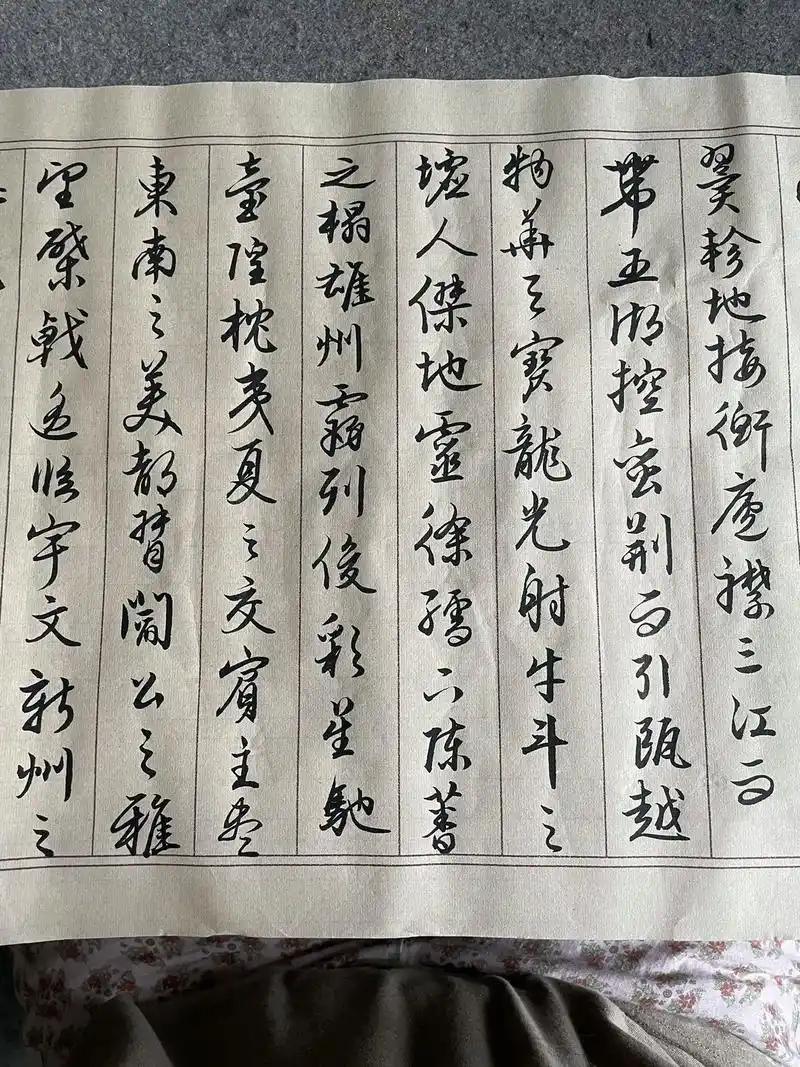 翼軫地接衡廬襟三江而
帶五湖控蛮荆而引瓯越
物華之寶龍光射牛斗之
墟人傑地靈徐孺下陳蕃
之榻雄州霧列俊彩星馳
臺隍枕夷夏之交賓主尽
東南之美都督閻公之雅
望棨戟遥臨宇文新州之